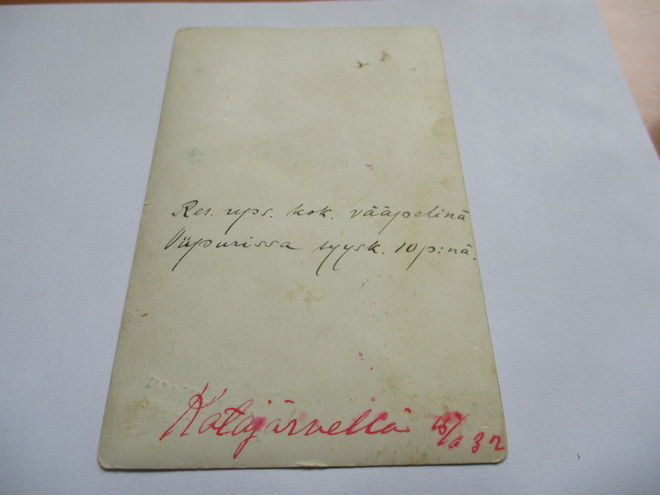 Res. ups. kok. vääpelinä
Viipurissa syysk. 10 p:nä.
Katajärvellä 32